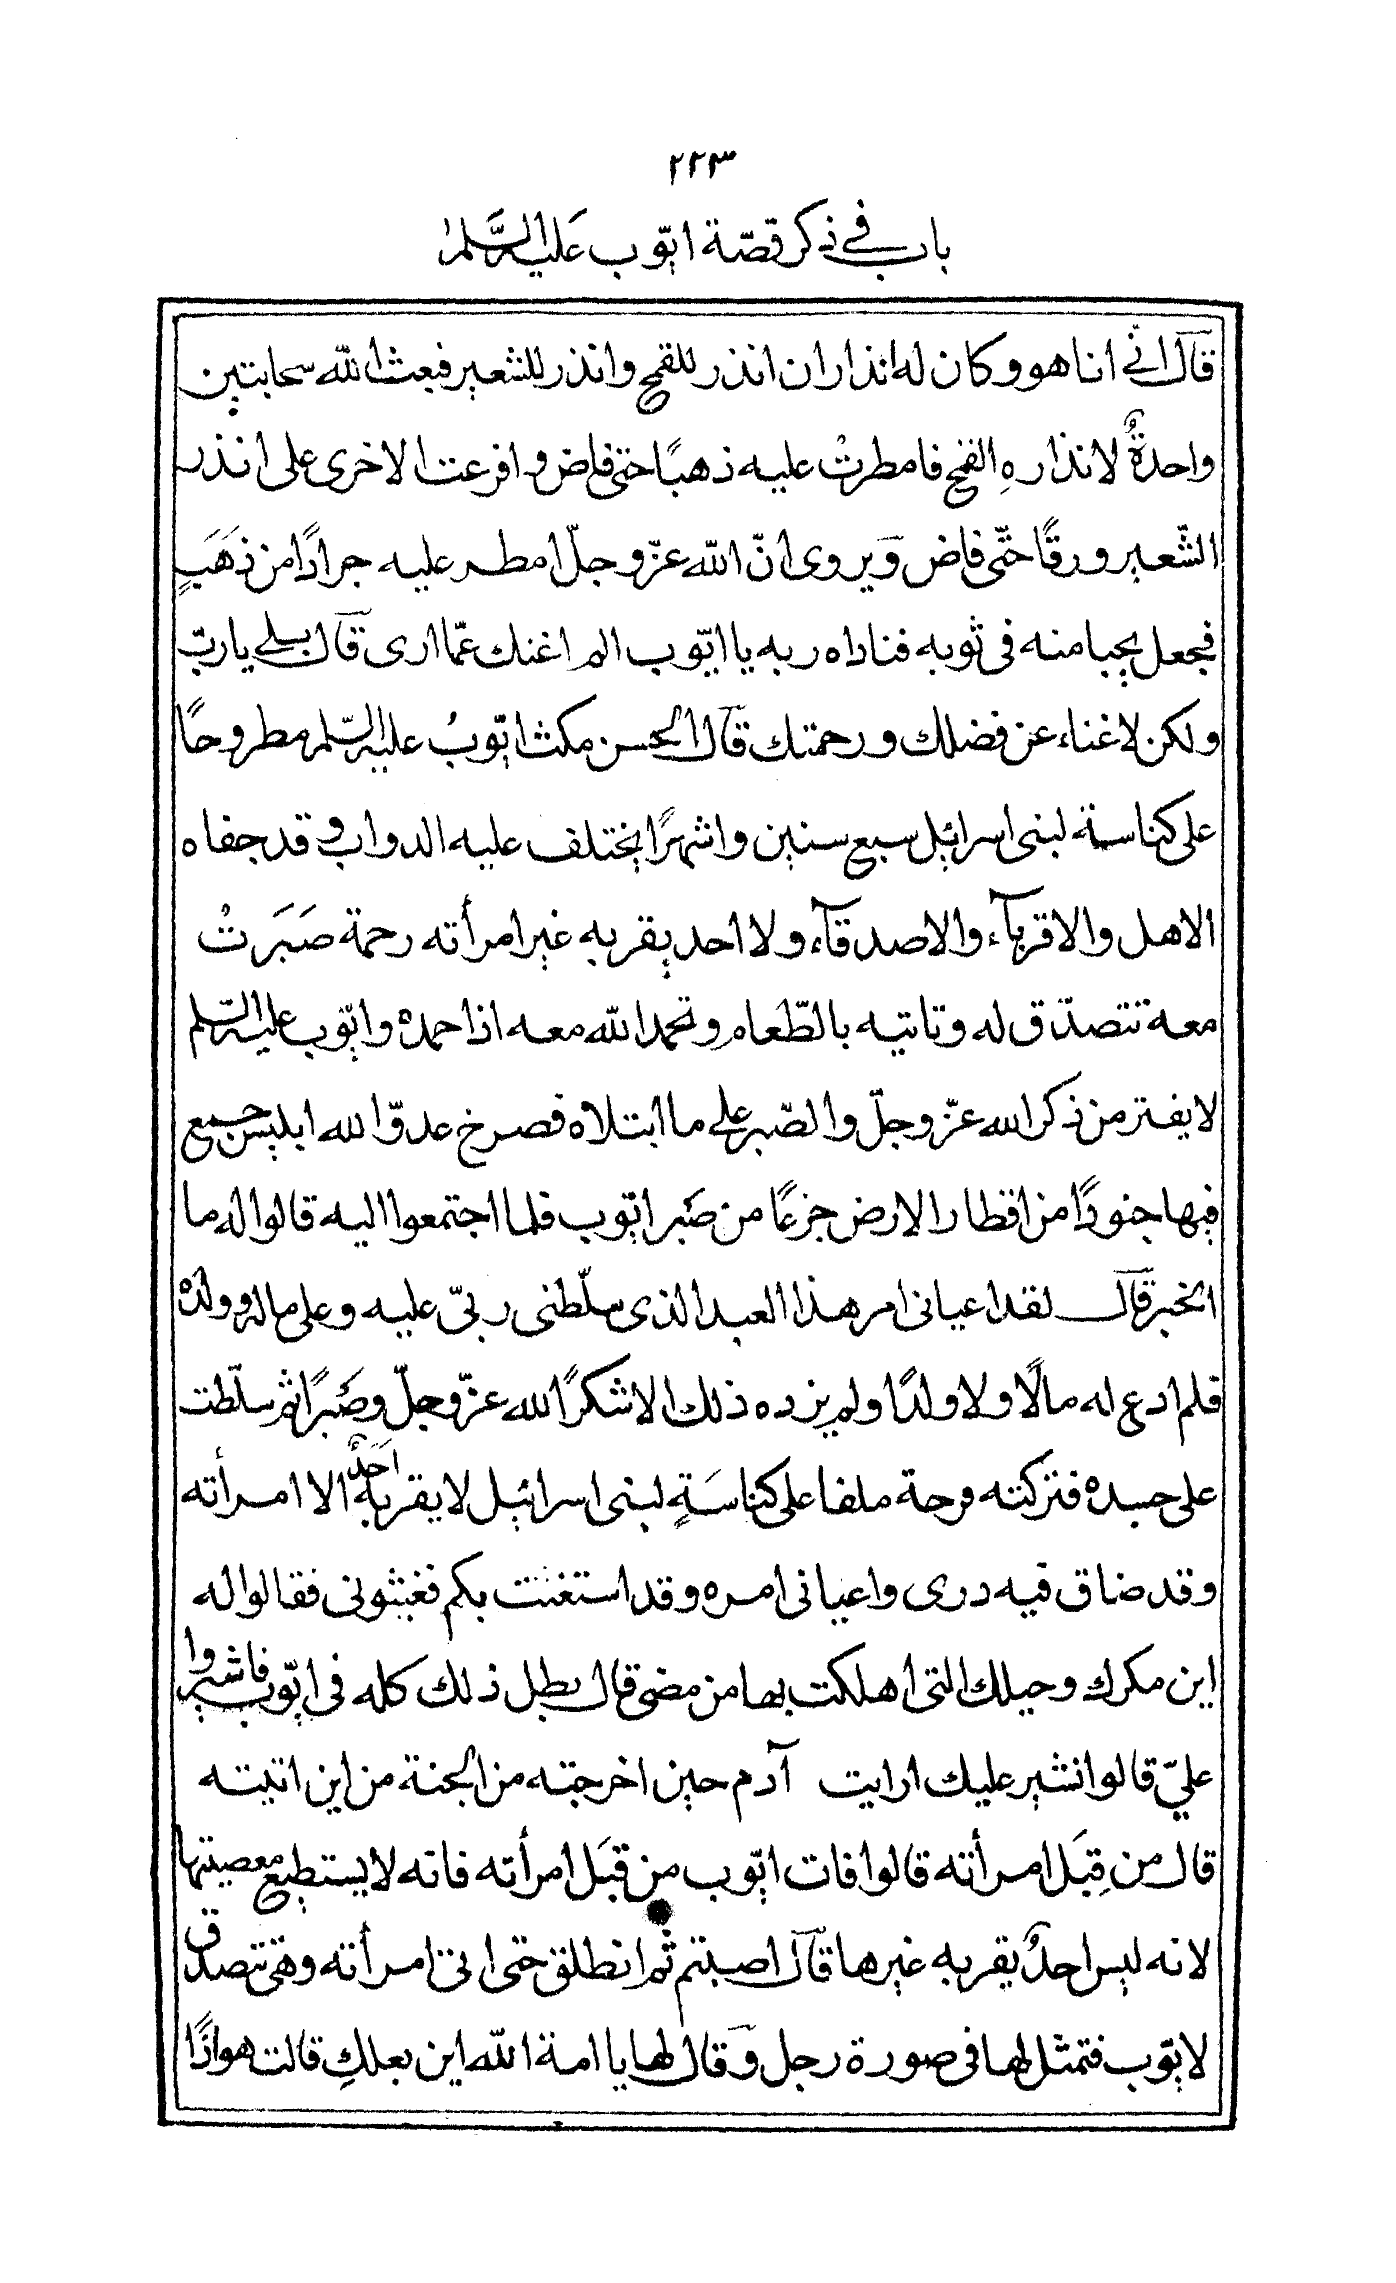 ٢٢٣
باب في ذكر قصّة ايّوب عليه السّلم
قال انّي انا هو وكان له انذاران انذر للقمح وانذر للشعير فبعث الله سحابتين
واحدةٌ لانذارهِ القمح فامطرتْ عليه ذهبًا حتى فاض وافرعت الاخرى على انذر
الشّعير ورقًا حتّى فاض وَيروى انّ الله عزّ وجلّ امطر عليه جرادًا من ذهَبٍ
فجعل يجبا منه فى ثوبه فناداه ربه يا ايّوب الم اغنك عمّا ارى قال بلى يا ربّ
ولكن لا غناء عن فضلك ورحمتك قال الحسن مكث ايّوبُ عليه السّلم مطروحًا
على كناسة لبنى اسرائيل سبع سنين واشهرًا يختلف عليه الدواب وقد جفاه
الاهل والاقربآء والاصدقآء ولا احد يقربه غير امرأته رحمة صَبَرتْ
معه تتصدّق له وتاتيه بالطّعام وتحمد الله معه اذا حمده وايّوب عليه السّلم
لا يفتر من ذكر الله عزّ وجلّ والصّبر على ما ابتلاه فصرخ عدوّ الله ابليس جميع
فيها جنودًا من اقطار الارض جزعًا من صَبر ايّوب فلما اجتمعوا اليه قالوا له ما
الخبر قال لقد اعيانى امر هذا العبد الذى سلّطنى ربّى عليه وعلى ماله وولده
فلم ادع له مالًا ولا ولدًا ولم يزده ذلك الا شكرًا لله عزّ وجلّ وصَبرًا ثم سلّطت
على جسده فتركته قرحة ملقا على كناسَةٍ لبنى اسرائيل لا يقربه احَدٌ الا امرأته
وقد ضاق فيه درى واعيانى امره وقد استغثت بكم فغيثونى فقالوا له
اين مكرك وحيلك التى اهلكت بها من مضى قال بطل ذلك كله فى ايّوب فاشيروا
عليّ قالوا نشير عليك ارايت آدم حين اخرجته من الجنة من اين اتيته
قال من قِبَل امرأته قالوا فات ايّوب من قبَل امرأته فانه لا يستطيع معصيتها
لانه ليس احدٌ يقربه غيرها قال اصبتم ثم انطلق حتى اتى امرأته وهى تتصدّق
لايّوب فتمثل لها فى صورة رجل وقال لها يا امة الله اين بعلكِ قالت هو اذًا